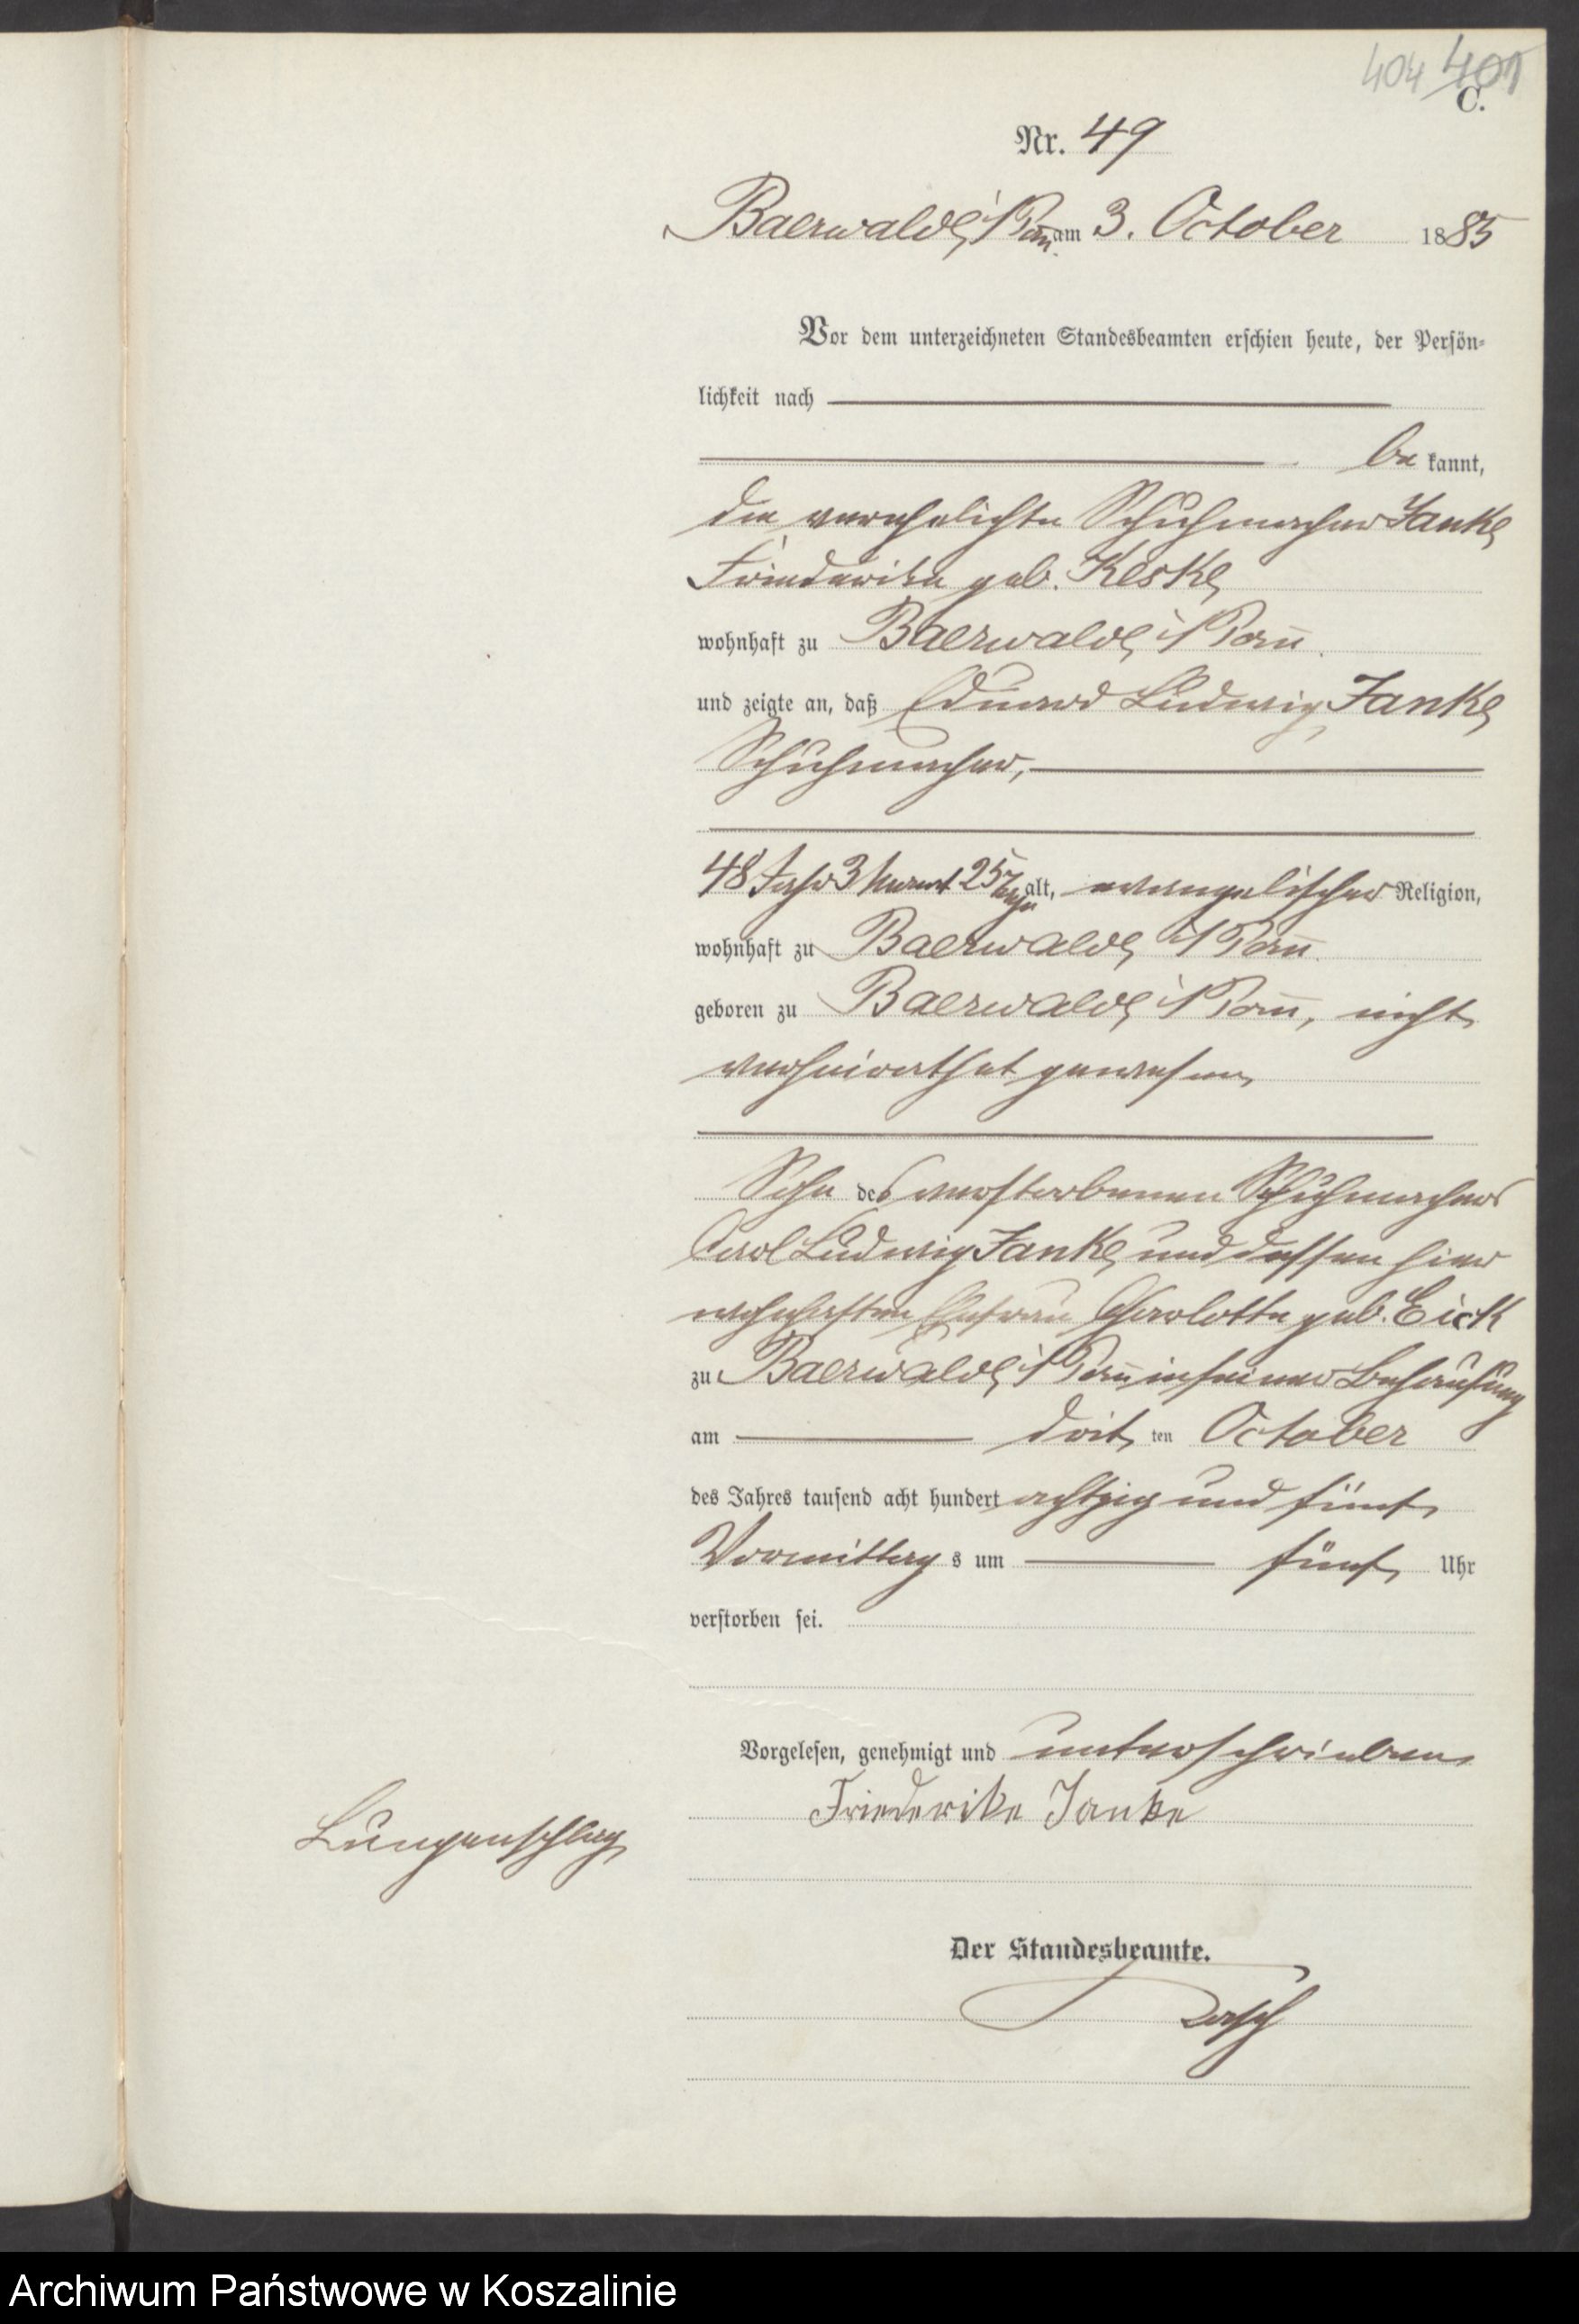 404 401
C.
Nr. 49
Baerwalde i/Pom am 3. October 1885
Vor dem unterzeichneten Standesbeamten erschien heute, der Persön-
lichkeit nach
be kannt,
die verehelichte Schuhmacher Janke
Friederike geb. Keske
wohnhaft zu Baerwalde i/Pom.
und zeigte an, daß Eduard Ludwig Janke
Schuhmacher,
48 Jahr 3 Monat 25 Tage alt, evangelischer Religion,
wohnhaft zu Baerwalde i/Pom.
geboren zu Baerwalde i/Pom, nicht
verheirathet gewesen
Sohn des verstorbenen Schuhmachers
Carl Ludwig Janke und dessen hier
wohnhaften Ehefrau Charlotte geb. Eick
zu Baerwalde i/Pom in seiner Behausung
am drit ten October
des Jahres tausend acht hundert achtzig und fünf
Vormittag s um fünf Uhr
verstorben sei.
Vorgelesen, genehmigt und unterschrieben
Friederike Janke
Lungenschlag
Der Standesbeamte.
Archiwum Państwowe w Koszalinie